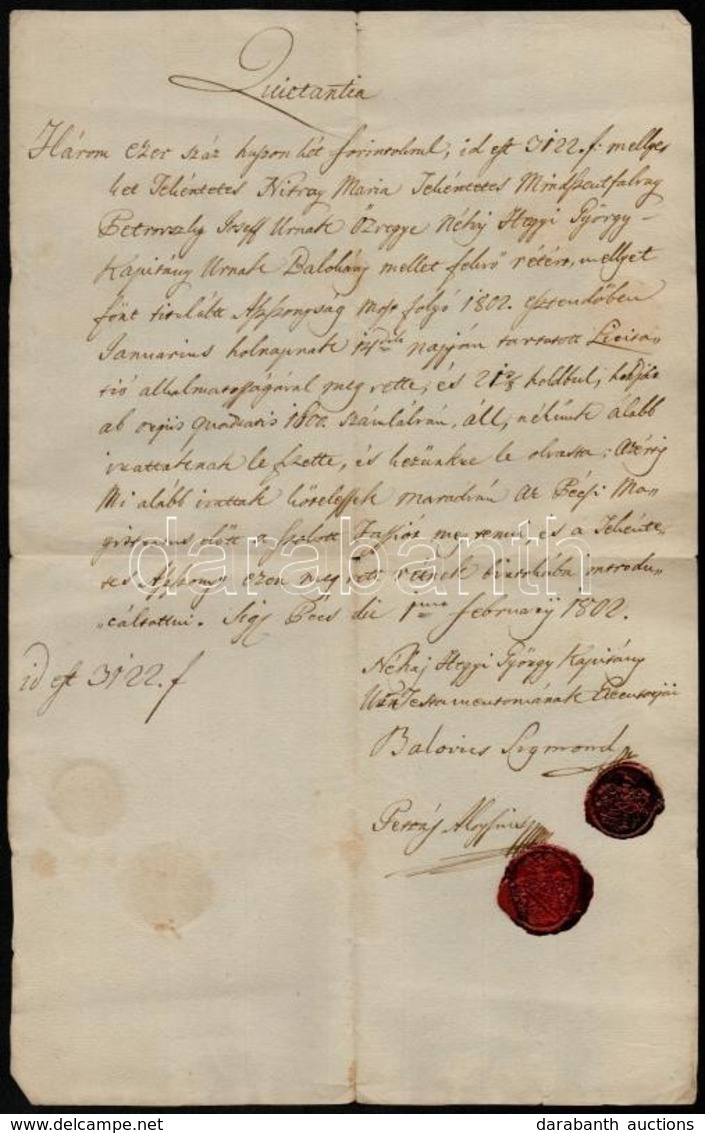 Quietantia
Három ezer száz huszon két forintokrul, id est 3122.f. mellye
ket Tekéntetes Nitray Maria Tekéntetes Mindszentfalvay
Petrovszky Josef Urnak Özvegye Néhaj Hegyi György
Kapitány Urnak Balokány mellet fekvő rétért, mellyet
fönt titulált Aszszonyság most folyó 1802. esztendőben
Januarius holnapnak 14dik napján tartatott Licita
tió alkalmatosságával meg vette, és 21 holdbul,
ab orgiis quadratis 1600. számlálván, áll, nékünk alább
irattaknak le tette, és kezünkre le olvasta; Azért
Mi alább irattak kötelessek maradván Az Pécsi Ma-
gistratus előtt a szokott Fassiót meg tenni, és a Tekénte-
tes Aszszonyt ezen meg vett rétnek birtokába introdu-
cáltattni. Sig Pécs die 1ma February 1802.
id est 3122.f
Néhaj Hegyi György Kapitány
Urn Testamentomának Executorjai
Balovics Sigmond
Aloysius
darabanth
www.darabanth.com
darabanth auctions